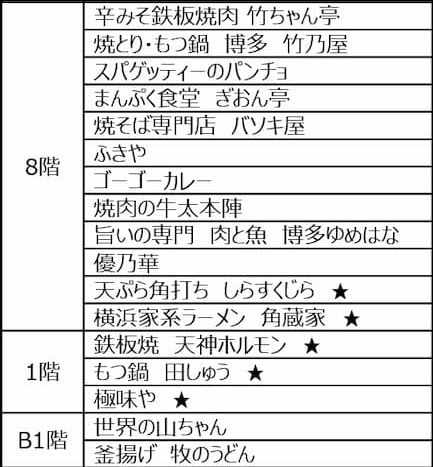 8階
辛みそ鉄板焼肉 竹ちゃん亭
焼とり・もつ鍋　博多　竹乃屋
スパゲッティーのパンチョ
まんぷく食堂　ぎおん亭
焼そば専門店　バソキ屋
ふきや
ゴーゴーカレー
焼肉の牛太本陣
旨いの専門　肉と魚　博多ゆめはな
優乃華
天ぷら角打ち　しらすくじら　★
横浜家系ラーメン　角蔵家　★
1階
鉄板焼　天神ホルモン　★
もつ鍋　田しゅう　★
極味や　★
B1階
世界の山ちゃん
釜揚げ　牧のうどん